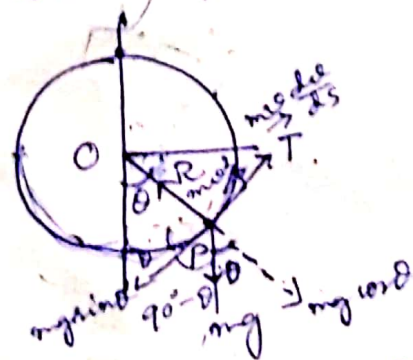 mv dv/ds
T
O
R
mv²
θ
P
θ
mg sinθ
90°-θ
mg
mg cosθ